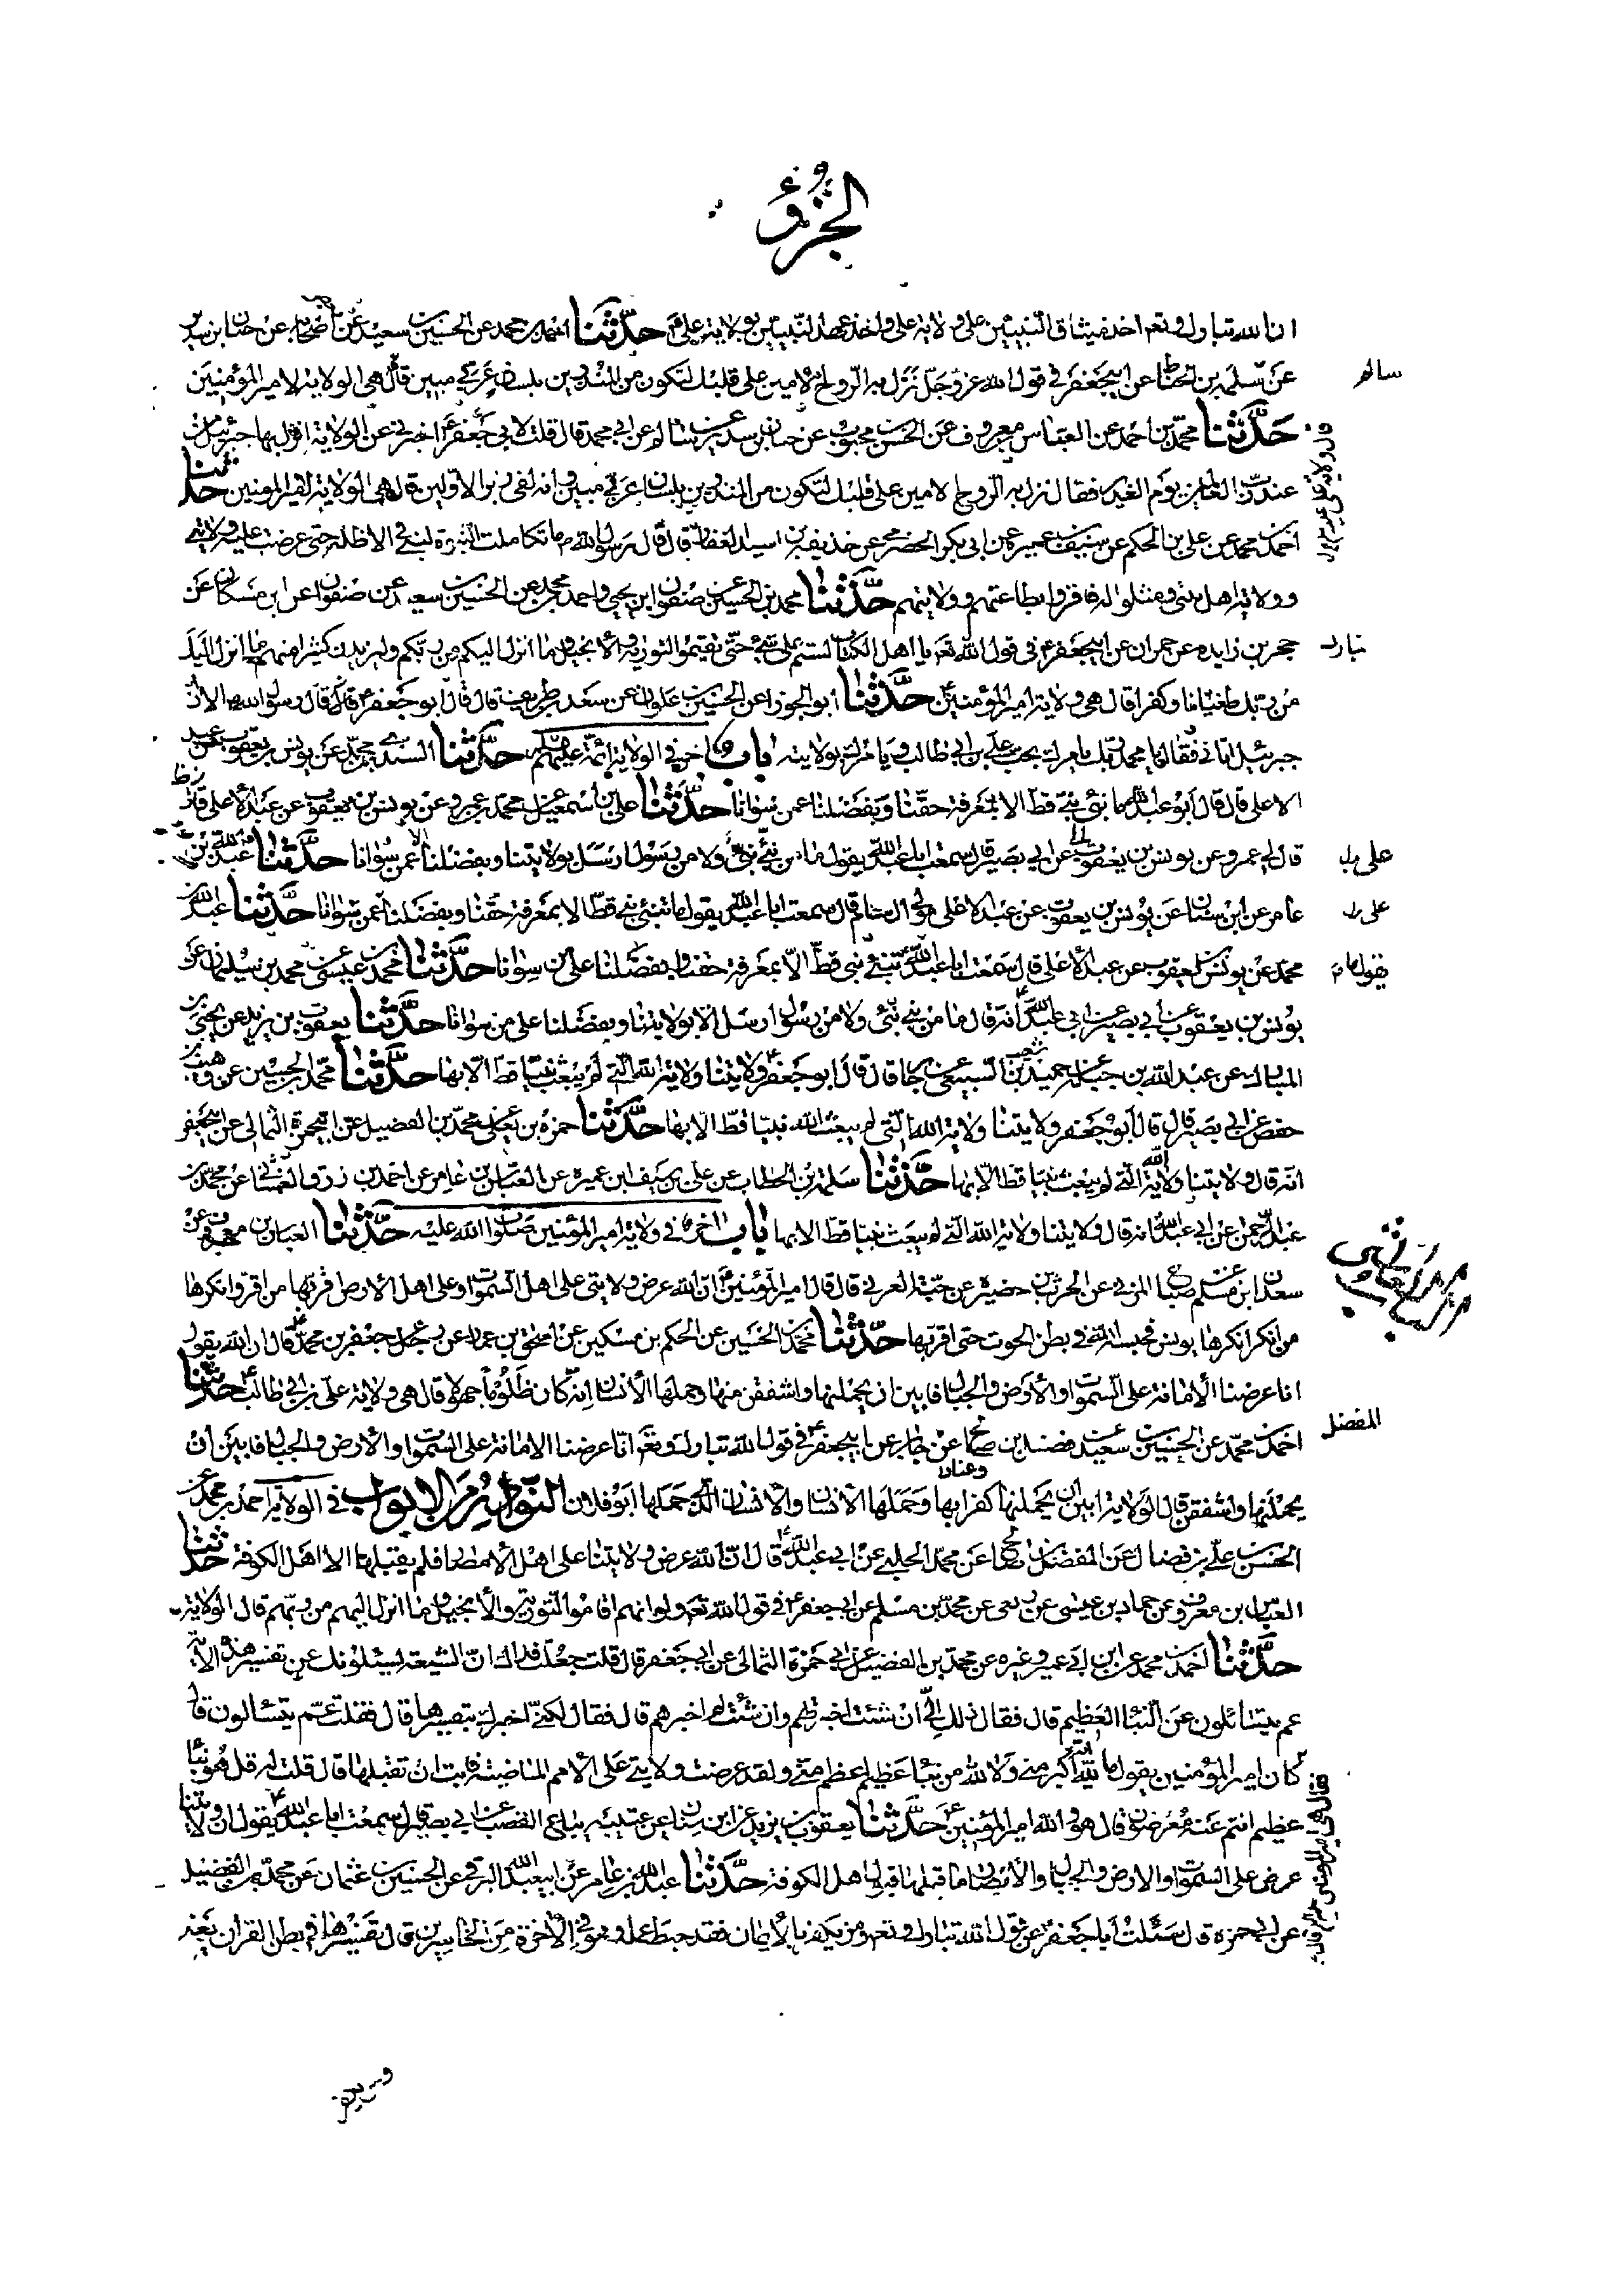 الجزؤ
ان الله تبارك وتعم اخذ ميثاق النبيين على ولاية على واخذ عهد النبيين بولاية علىؑ حدثنا احمد بن محمد عن الحسين بن سعيد عن بعض اصحابه عن حنان ابن سدير
عن سلمة بن الحناط عن ابيجعفر في قول الله عزوجل نزل به الروح الامين على قلبك لتكون من المنذرين بلسان عربي مبين قال هي الولاية لامير المؤمنين
سالم
حدثنا محمد بن احمد عن العباس بن معروف عن الحسن بن محبوب عن حنان بن سدير عن سالم عن ابي محمد قال قلت لابي جعفر اخبرني عن الولاية انزل بها جبرئيل من
عند رب العالمين يوم الغدير فقال نزل به الروح الامين على قلبك لتكون من المنذرين بلسان عربي مبين وانه لفي زبر الاولين قال هي الولاية لامير المؤمنين حدثنا
احمد بن محمد عن على بن الحكم عن سيف بن عميره عن ابي بكر الحضرمي عن حذيفه بن اسيد الغفاري قال قال رسول الله ص ما تكاملت النبوة لنبي في الاظلة حتى عرضت عليه ولايتي
وولاية اهل بيتي ومثلوا له فاقروا بطاعتهم وولايتهم حدثنا محمد بن الحسين عن صفوان ابن يحيي واحمد بن محمد عن الحسين بن سعيد عن صفوان عن ابن مسكان عن
حجر بن زايده عن حمران عن ابيجعفر في قول الله تعم يا اهل الكتاب لستم على شئ حتى تقيموا التورية والانجيل وما انزل اليكم من ربكم وليزيدن كثيرا منهم ما انزل اليك
من ربك طغيانا وكفرا قال هي ولاية امير المؤمنين حدثنا ابو الجوزا عن الحسين بن علوان عن سعد بن طريف قال قال ابو جعفر قال قال رسول الله الا ان
جبرئيل اتاني فقال يا محمد ربك يامرك بحب على بن ابي طالب ويامرك بولايته باب اخر في الولاية ائمة عليهم حدثنا السندي بن محمد عن يونس بن يعقوب عن عبد
الاعلى قال قال ابو عبد الله ما نبئ نبي قط الا بمعرفة حقنا وبفضلنا عمن سوانا حدثنا على بن اسمعيل عن محمد بن عمرو عن يونس بن يعقوب عن عبد الاعلى قال
قال لي عمرو عن يونس بن يعقوب عن ابي بصير قال سمعت ابا عبد الله يقول ما من نبي نبئ ولا من رسول ارسل بولايتنا وبفضلنا عمن سوانا حدثنا عبد الله بن
عامر عن ابن سنان عن يونس بن يعقوب عن عبد الاعلى مولى ال سام قال سمعت ابا عبد الله يقول ما تنبئ نبي قط الا بمعرفة حقنا وبفضلنا عمن سوانا حدثنا عبد الله بن
محمد عن يونس بن يعقوب عن عبد الاعلى قال سمعت ابا عبد الله تنبئ نبي قط الا بمعرفة حقنا وبفضلنا على من سوانا حدثنا محمد بن عيسى عن محمد بن سليمان عن
يقول ما
يونس بن يعقوب عن ابي بصير عن ابي عبد الله انه قال ما من نبي نبئ ولا من رسول ارسل الا بولايتنا وبفضلنا على من سوانا حدثنا يعقوب بن يزيد عن يحيي بن
المبارك عن عبد الله بن جبلة عن حميد بن شعيب السبيعي عن جابر قال قال ابو جعفر ولايتنا ولاية الله التي لم يبعث نبيا قط الا بها حدثنا محمد بن الحسين عن وهيب بن
حفص عن ابي بصير قال قال ابو جعفر ولايتنا ولاية الله التي لم يبعث الله نبيا قط الا بها حدثنا حمزه بن يعلى عن محمد بن الفضيل عن ابيحمزة الثمالي عن ابيجعفر
انه قال ولايتنا ولاية الله التي لم يبعث نبيا قط الا بها حدثنا سلمة بن الخطاب عن على بن سيف ابن عميره عن العباس بن عامر عن احمد بن رزق الغمشاني عن محمد بن
عبد الرحمن عن ابي عبد الله انه قال ولايتنا ولاية الله التي لم يبعث نبيا قط الا بها باب اخر في ولاية امير المؤمنين صلوات الله عليه حدثنا العباس بن معروف عن
سعدان ابن مسلم عن صباح المزني عن الحرث بن حضيره عن حبة العرني قال قال امير المؤمنين ان الله عرض ولايتي على اهل السموات وعلى اهل الارض اقر بها من اقر وانكرها
من انكر انكرها يونس فحبسه الله في بطن الحوت حتى اقر بها حدثنا محمد بن الحسين عن الحكم بن مسكين عن اسحق بن عمار عن رجل عن جعفر بن محمد قال ان الله يقول
انا عرضنا الامانة على السموات والارض والجبال فابين ان يحملنها واشفقن منها وحملها الانسان انه كان ظلوما جهولا قال هي ولاية على بن ابي طالب حدثنا
المفضل
احمد بن محمد عن الحسين بن سعيد عن فضل بن صالح عن جابر عن ابيجعفر في قول الله تبارك وتعم انا عرضنا الامانة على السموات والارض والجبال فابين ان
يحملنها واشفقن قال الولاية ابين ان يحملنها كفرا بها وعنادا وحملها الانسان والانسان الذي حملها ابو فلان النوادر من الابواب في الولاية احمد بن محمد عن
الحسن بن على بن فضال عن المفضل بن صالح عن محمد الحلبي عن ابي عبد الله قال ان الله عرض ولايتنا على اهل الامصار فلم يقبلها الا اهل الكوفة حدثنا
العباس بن معروف عن حماد بن عيسى عن ربعي عن محمد بن مسلم عن ابي جعفر في قول الله تعم ولو انهم اقاموا التورية والانجيل وما انزل اليهم من ربهم قال الولاية
حدثنا احمد بن محمد عن ابن ابي عمير وغيره عن محمد بن الفضيل عن ابي حمزة الثمالي عن ابي جعفر قال قلت جعلت فداك ان الشيعة يسئلونك عن تفسير هذه الاية
عم يتسائلون عن النبا العظيم قال فقال ذلك الي ان شئت اخبرتهم وان شئت لم اخبرهم قال فقال لكني اخبرك بتفسيرها قال فقلت عم يتسائلون قال
كان امير المؤمنين يقول ما لله اية اكبر مني ولا لله من نبا عظيم اعظم مني ولقد عرضت ولايتي على الامم الماضية فابت ان تقبلها قال قلت له قل هو نبا
عظيم انتم عنه معرضون قال هو والله امير المؤمنين حدثنا يعقوب بن يزيد عن ابن سنان عن عتيبه بياع القصب عن ابي بصير قال سمعت ابا عبد الله يقول ان ولايتنا
عرض على السموات والارض والجبال والامصار ما قبلها قبول اهل الكوفة حدثنا عبد الله بن عامر عن ابي عبد الله البرقي عن الحسين بن عثمان عن محمد بن الفضيل
عن ابي حمزة قال سئلت ابا جعفر عن قول الله تبارك وتعم ومن يكفر بالايمان فقد حبط عمله وهو في الاخرة من الخاسرين قال تفسيرها في بطن القران يعني